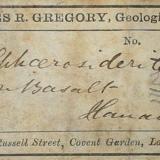 ES R. GREGORY, Geologi
No.
Sphærosiderit
Basalt
Hanau
Russell Street, Covent Garden, Lo